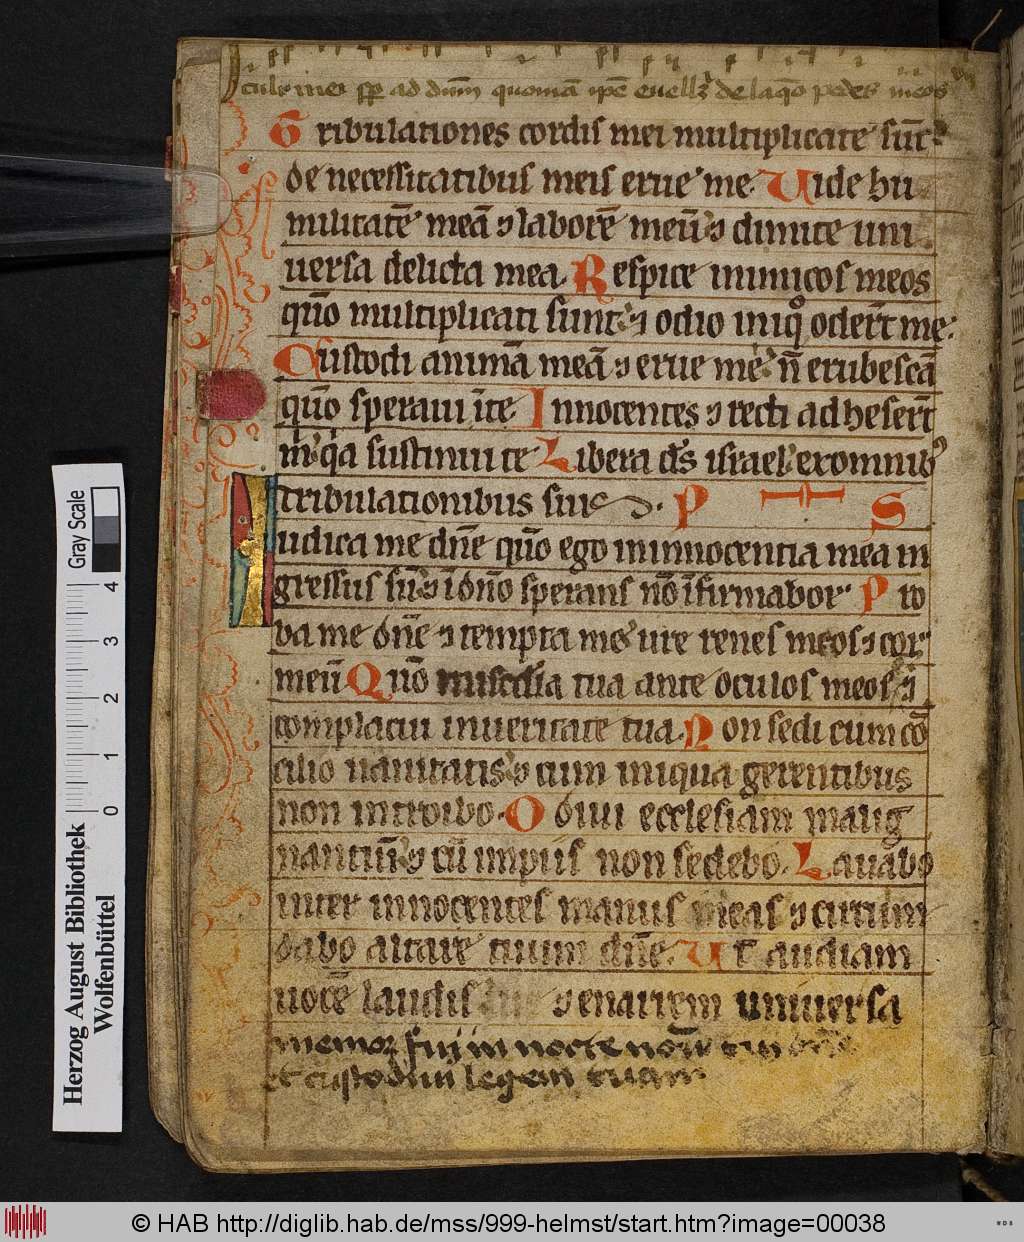 culi mei sp̄ ad dn̄m quoniā ip̄e euell3 de laq̄o pedes meos
Tribulationes cordis mei multiplicate sūt
de necessitatibus meis erue me. Uide hu
militatē meā ⁊ laborē meū ⁊ dimitte uni
uersa delicta mea. Respice inimicos meos
quō multiplicati sunt ⁊ odio iniqͦ oderūt me.
Custodi animā meā ⁊ erue me n̄ erubescā
quō speraui ī te. Innocentes ⁊ recti adheserūt
m̍ q̍a sustinui te Libera ds̄ israel ex omnibꝰ
tribulationibus suis D. P S
Iudica me dn̄e quō ego in innocentia mea in
gressus sū ⁊ ī dn̄o sperans nō īfirmabor. Pro
ba me dn̄e ⁊ tempta me ure renes meos ⁊ cor
meū Quō misc̄dia tua ante oculos meos ⁊
complacui in ueritate tua. Non sedi cum cō
cilio uanitatis ⁊ cum iniqua gerentibus
non introibo. Odiui ecclesiam malig
nantiū ⁊ cū impiis non sedebo. Lauabo
inter innocentes manus meas ⁊ circum
dabo altare tuum dn̄e. Ut audiam
uocē laudis tue ⁊ enarrem uniuersa
memor fui in nocte nōis tui dn̄e
et custodiui legem tuam
Gray Scale
0 1 2 3 4
Herzog August Bibliothek
Wolfenbüttel
© HAB http://diglib.hab.de/mss/999-helmst/start.htm?image=00038